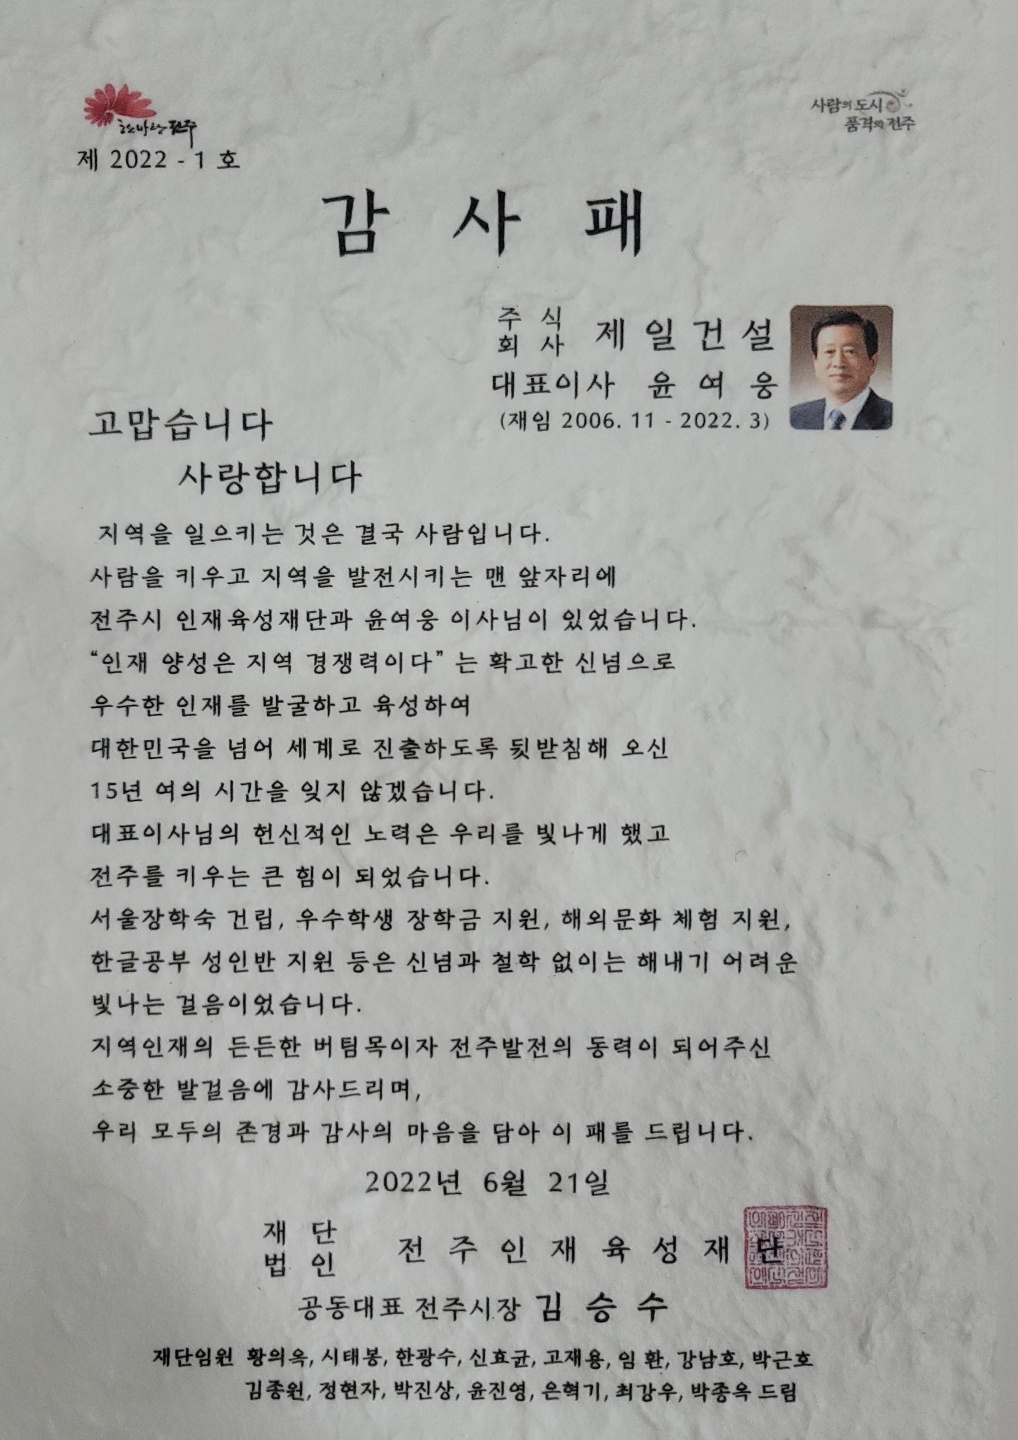 한바탕전주
사람의 도시
품격의 전주
제 2022 - 1 호
감 사 패
주식회사 제일건설
대표이사 윤여웅
(재임 2006. 11 - 2022. 3)
고맙습니다
사랑합니다
지역을 일으키는 것은 결국 사람입니다.
사람을 키우고 지역을 발전시키는 맨 앞자리에
전주시 인재육성재단과 윤여웅 이사님이 있었습니다.
“인재 양성은 지역 경쟁력이다” 는 확고한 신념으로
우수한 인재를 발굴하고 육성하여
대한민국을 넘어 세계로 진출하도록 뒷받침해 오신
15년 여의 시간을 잊지 않겠습니다.
대표이사님의 헌신적인 노력은 우리를 빛나게 했고
전주를 키우는 큰 힘이 되었습니다.
서울장학숙 건립, 우수학생 장학금 지원, 해외문화 체험 지원,
한글공부 성인반 지원 등은 신념과 철학 없이는 해내기 어려운
빛나는 걸음이었습니다.
지역인재의 든든한 버팀목이자 전주발전의 동력이 되어주신
소중한 발걸음에 감사드리며,
우리 모두의 존경과 감사의 마음을 담아 이 패를 드립니다.
2022년 6월 21일
재단법인 전주인재육성재단
공동대표 전주시장 김승수
재단임원 황의옥, 시태봉, 한광수, 신효균, 고재용, 임 환, 강남호, 박근호
김종원, 정현자, 박진상, 윤진영, 은혁기, 최강우, 박종옥 드림